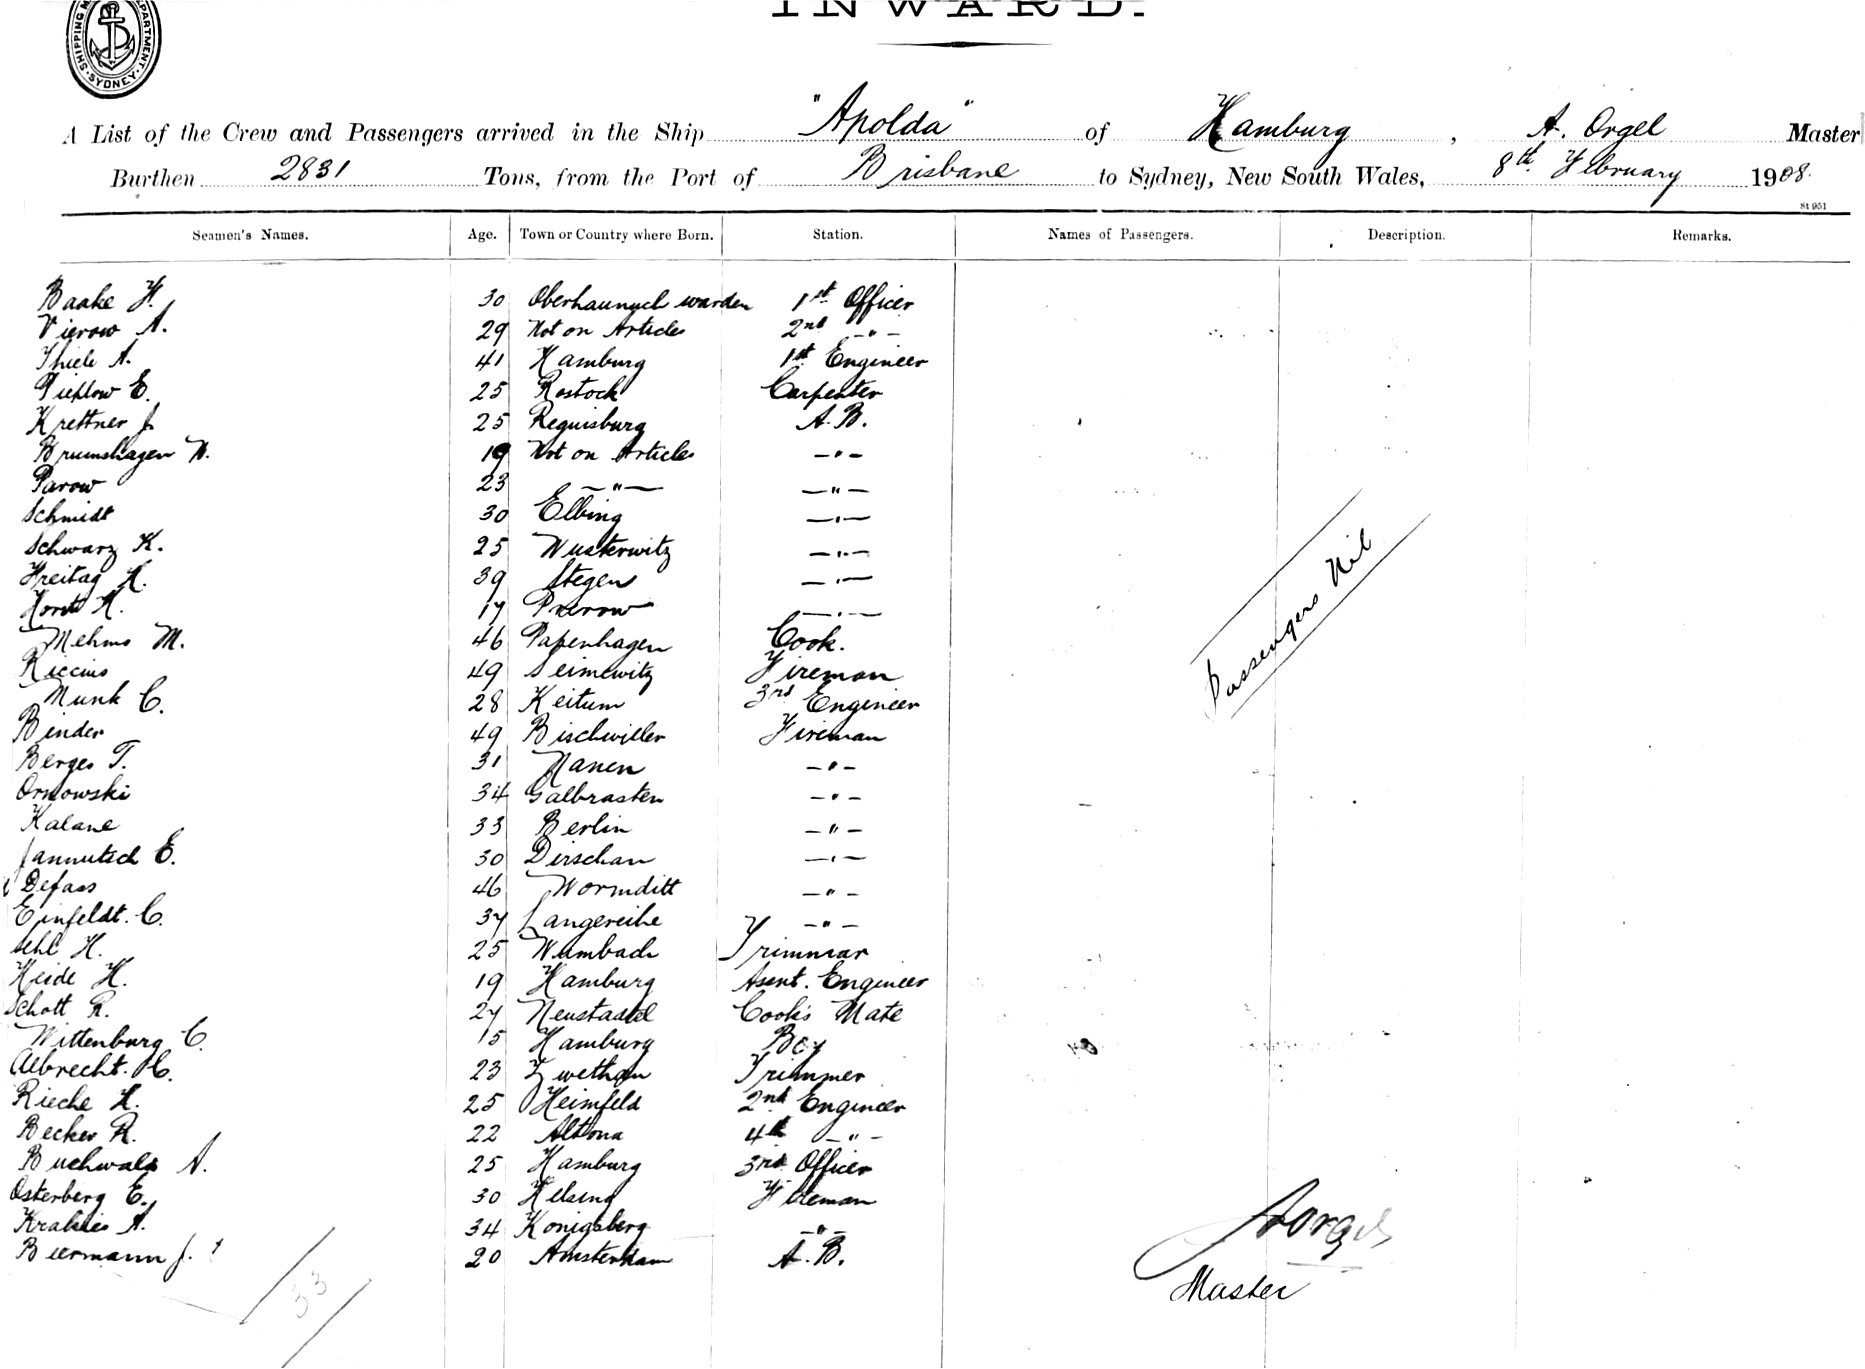 INWARD.
SHIPPING DEPARTMENT. SYDNEY.
A List of the Crew and Passengers arrived in the Ship "Apolda" of Hamburg, A. Orgel Master
Burthen 2831 Tons, from the Port of Brisbane to Sydney, New South Wales, 8th February 1908.
St 951
Seamen's Names. Age. Town or Country where Born. Station. Names of Passengers. Description. Remarks.
Baake H. 30 1st Officer
Vierow A. 29 Not on Articles 2nd -"-
Thiele A. 41 Hamburg 1st Engineer
E. 25 Rostock Carpenter
Krettner J. 25 A.B.
Brumshagen W. 19 Not on Articles -"-
Parow 23 -"- -"-
Schmidt 30 Elbing -"-
Schwarz K. 25 Wusterwitz -"-
Freitag H. 39 Stegen -"-
17 Prerow -"-
Mehms M. 46 Papenhagen Cook.
Riccius 49 Fireman
Munk C. 28 Keitum 3rd Engineer
Binder 49 Bischwiller Fireman
Berges T. 31 Nanen -"-
Ornowski 34 Galbrasten -"-
Kalane 33 Berlin -"-
Jannutsch E. 30 Dirschau -"-
Defass 46 Wormditt -"-
Einfeldt. C. 37 Langereihe -"-
H. 25 Wambach Trimmar
Heide H. 19 Hamburg Asent. Engineer
Schott R. 27 Neustadt Cook's Mate
Wittenburg C. 15 Hamburg Boy
Albrecht. 23 Zwethau Trimmer
Rieche H. 25 Heimfeld 2nd Engineer
Becker R. 22 Altona 4th -"-
Buchwald A. 25 Hamburg 3rd Officer
Osterberg E. 30 Helsing Fireman
A. 34 Konigsberg -"-
Biermann J. 20 Amsterdam A.B.
Passengers Nil
33
Master